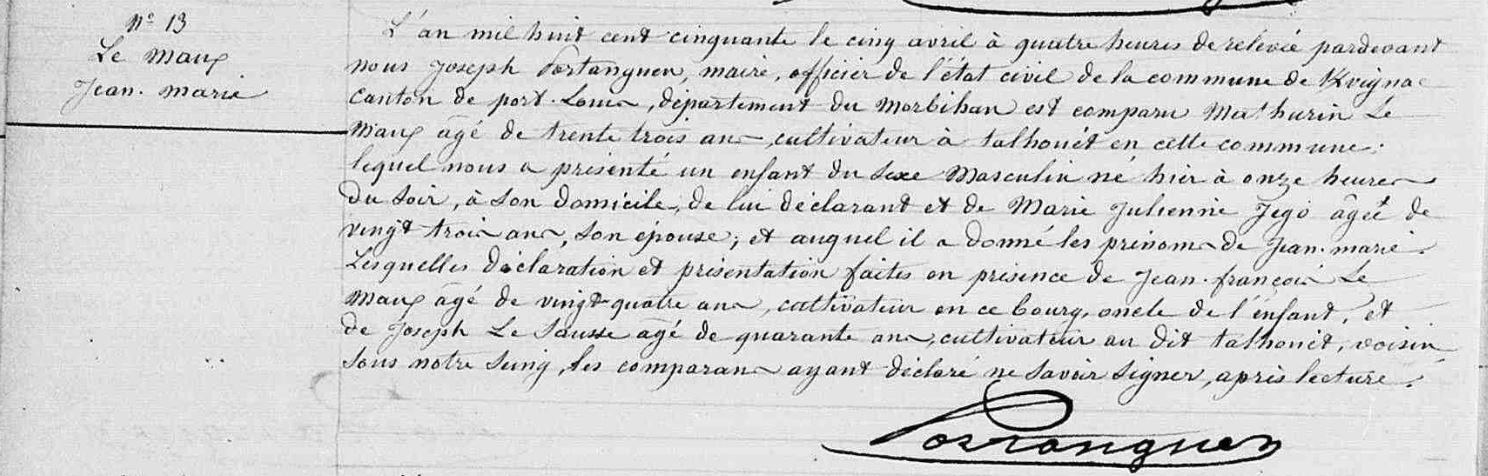 N° 13
Le Maux
Jean-marie
L'an mil huit cent cinquante le cinq avril à quatre heures de relevée pardevant
nous Joseph Postanguen, maire, officier de l'état civil de la commune de Kvignac
canton de port-Louis, département du Morbihan est comparu Mathurin Le
Maux âgé de trente trois ans, cultivateur à talhouët en cette commune;
lequel nous a présenté un enfant du sexe Masculin né hier à onze heures
du soir, à son domicile, de lui déclarant et de Marie Julienne Jego âgée de
vingt trois ans, son épouse; et auquel il a donné les prénoms de Jean-marie.
Lesquelles déclaration et présentation faites en présence de Jean-françois Le
Maux âgé de vingt-quatre ans, cultivateur en ce bourg, oncle de l'enfant, et
de Joseph Le Sausse agé de quarante ans, cultivateur au dit talhouët, voisin
sous notre seing, les comparans ayant déclaré ne savoir signer, après lecture.
Postanguen